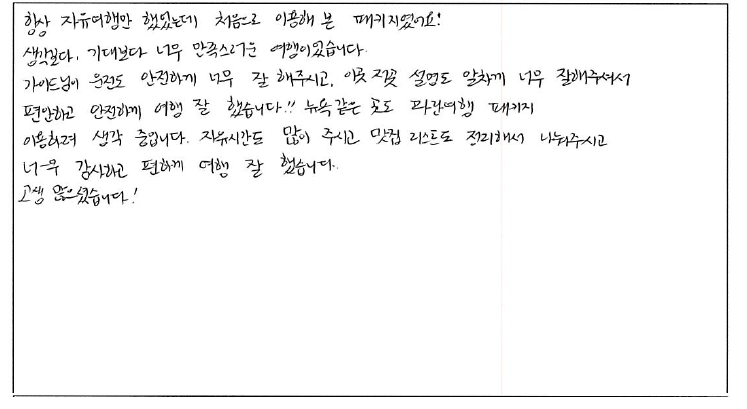 항상 자유여행만 했었는데 처음으로 이용해 본 패키지였어요!
생각보다, 기대보다 너무 만족스러운 여행이었습니다.
가이드님이 운전도 안전하게 너무 잘 해주시고, 이곳저곳 설명도 알차게 너무 잘해주셔서
편안하고 안전하게 여행 잘 했습니다!! 뉴욕같은 곳도 파란여행 패키지
이용하려 생각 중입니다. 자유시간도 많이 주시고 맛집 리스트도 정리해서 나눠주시고
너무 감사하고 편하게 여행 잘 했습니다.
고생 많으셨습니다!